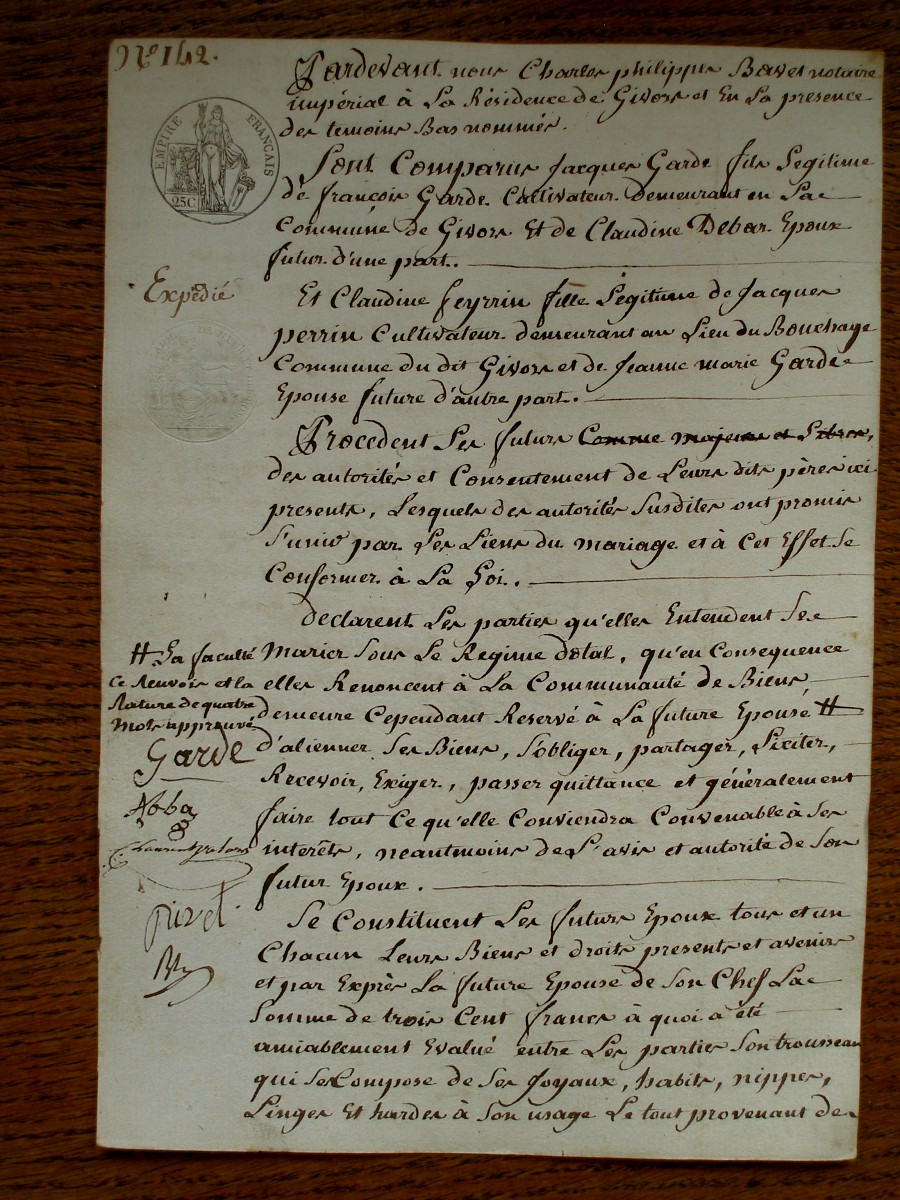 Nº 142.
EMPIRE FRANÇAIS
25C
Pardevant nous Charles philippe Bavet notaire
impérial à La Résidence de Givors et En La presence
des temoins Bas nommés.
Sont Comparus Jacques Garde fils Legitime
de françois Garde Cultivateur demeurant en Lac
Commune de Givors Et de Claudine Debar Epoux
futur d'une part.
Expédié
Et Claudine feyrrin fille Légitime de Jacques
perrin Cultivateur demeurant au Lieu du Bouchage
Commune du dit Givors et de Jeanne marie Garde
Epouse future d'autre part.
Procedent Les futurs Comme majeurs et Libres,
des autorités et Consentement de Leurs dits pères ici
presents, Lesquels des autorités Susdites ont promis
S'unir par Les Liens du mariage et à Cet Effet Se
Conformer à La Loi.
declarent Les parties qu'elles Entendent Se
Marier Sous Le Regime dotal, qu'en Consequence
elles Renoncent à La Communauté de Biens,
demeure Cependant Reservé à La future Epouse #
d'alienner Ses Biens, S'obliger, partager, Liciter,
Recevoir, Exiger, passer quittance et généralement
faire tout Ce qu'elle Conviendra Convenable à Ses
interêts, neantmoins de L'avis et autorité de Son
futur Epoux.
# La faculté
Ce Renvois et la
Rature de quatre
Mots approuvé
Garde
Abba
pivel
Se Constituent Les futurs Epoux tous et un
Chacun Leurs Biens et droits presents et avenirs
et par Exprès La future Epouse de Son Chef La
Somme de trois Cent francs à quoi a été
amiablement Evalué entre Les parties Son trousseau
qui Se Compose de Ses Joyaux, habits, nippes,
Linges Et hardes à Son usage Le tout provenant de